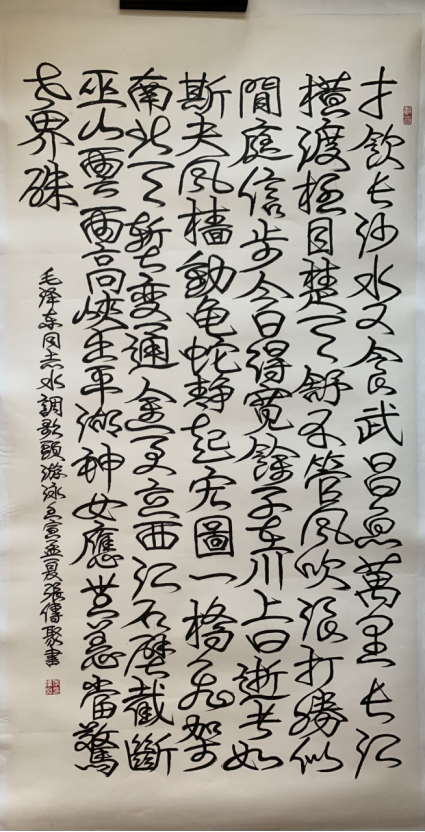 才飲长沙水又食武昌魚萬里长江
横渡極目楚天舒不管风吹浪打勝似
閒庭信步今日得寬餘子在川上曰逝者如
斯夫风檣動龟蛇静起宏圖一橋飛架
南北天塹變通途更立西江石壁截斷
巫山雲雨高峡出平湖神女應無恙當驚
世界殊
毛泽东同志水調歌頭游泳壬寅孟夏張傳聚書